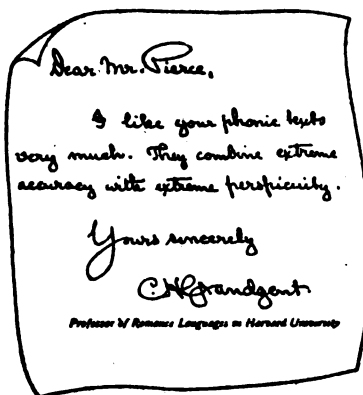 Dear Mr. Pierce,
I like your phonic texts
very much. They combine extreme
accuracy with extreme perspicuity.
Yours sincerely
C H Grandgent
Professor of Romance Languages in Harvard University